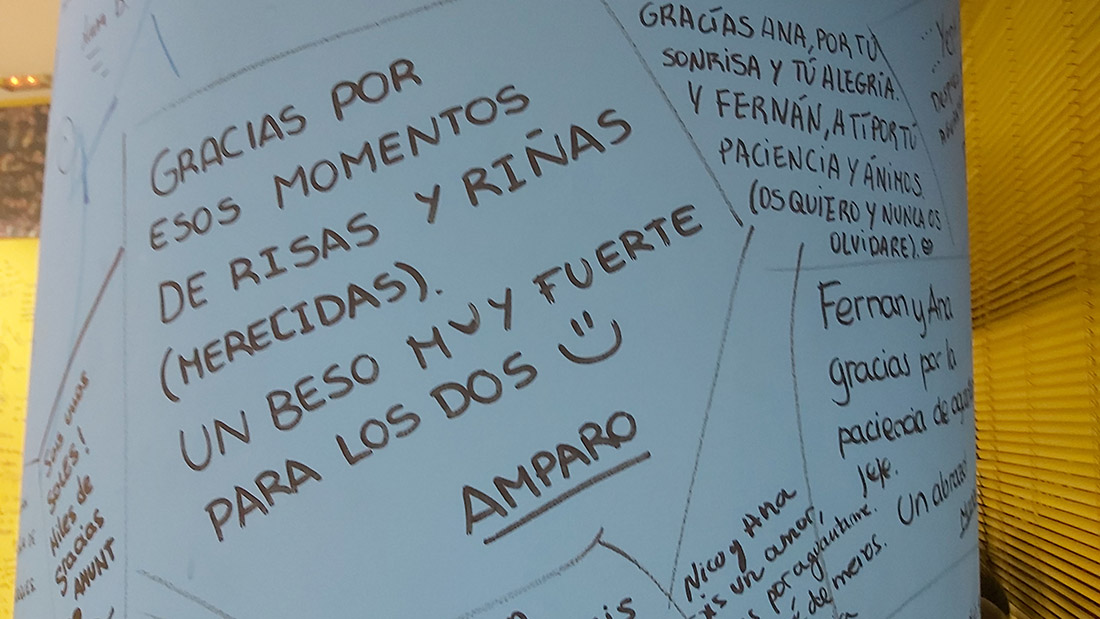 GRACIAS POR
ESOS MOMENTOS
DE RISAS Y RIÑAS
(MERECIDAS).
UN BESO MUY FUERTE
PARA LOS DOS
AMPARO
GRACÍAS ANA, POR TÚ
SONRISA Y TÚ ALEGRIA.
Y FERNÁN, A TÍ POR TÚ
PACIENCIA Y ÁNIMOS.
(OS QUIERO Y NUNCA OS
OLVIDARE).
Fernan y Ana
gracias por la
paciencia de
jeje.
Un abrazo
Nico y Ana
un amor,
por aguantarme.
de menos.
Sois unos
SOLES!
Miles de
Gracias